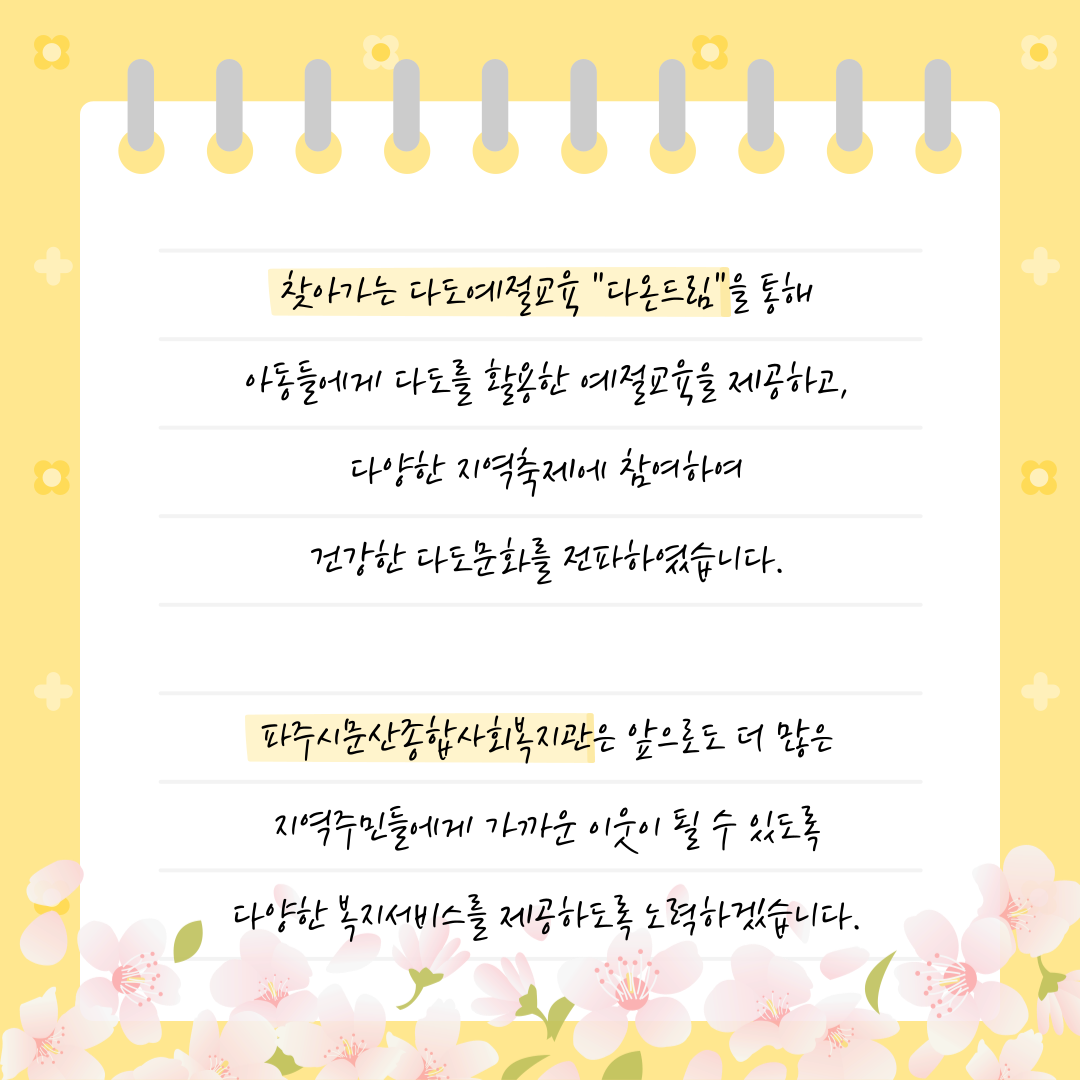 찾아가는 다도예절교육 "다온드림"을 통해
아동들에게 다도를 활용한 예절교육을 제공하고,
다양한 지역축제에 참여하여
건강한 다도문화를 전파하였습니다.
파주시문산종합사회복지관은 앞으로도 더 많은
지역주민들에게 가까운 이웃이 될 수 있도록
다양한 복지서비스를 제공하도록 노력하겠습니다.